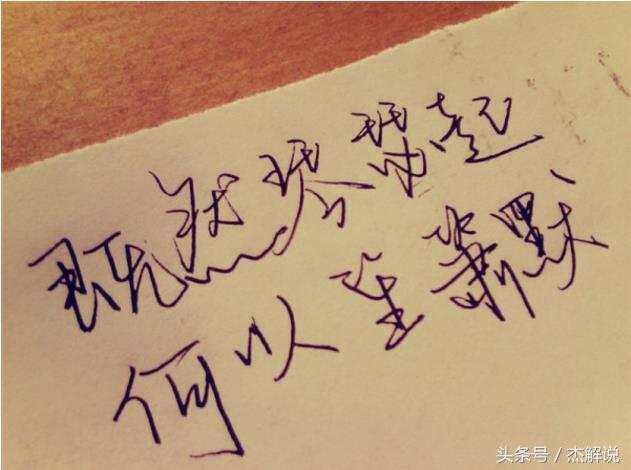 既然琴瑟起
何以笙箫默
头条号 / 杰解说